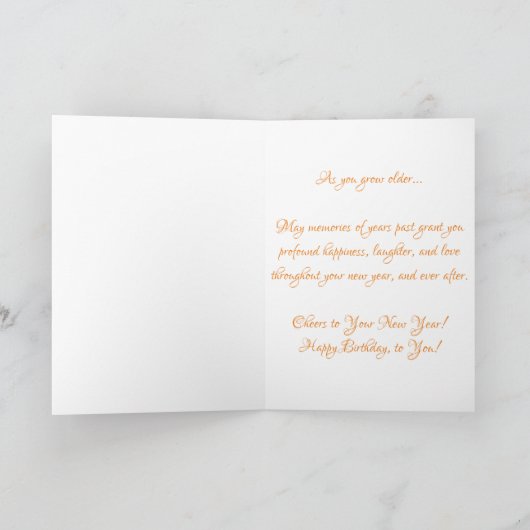 As you grow older...
May memories of years past grant you
profound happiness, laughter, and love
throughout your new year, and ever after.
Cheers to Your New Year!
Happy Birthday, to You!